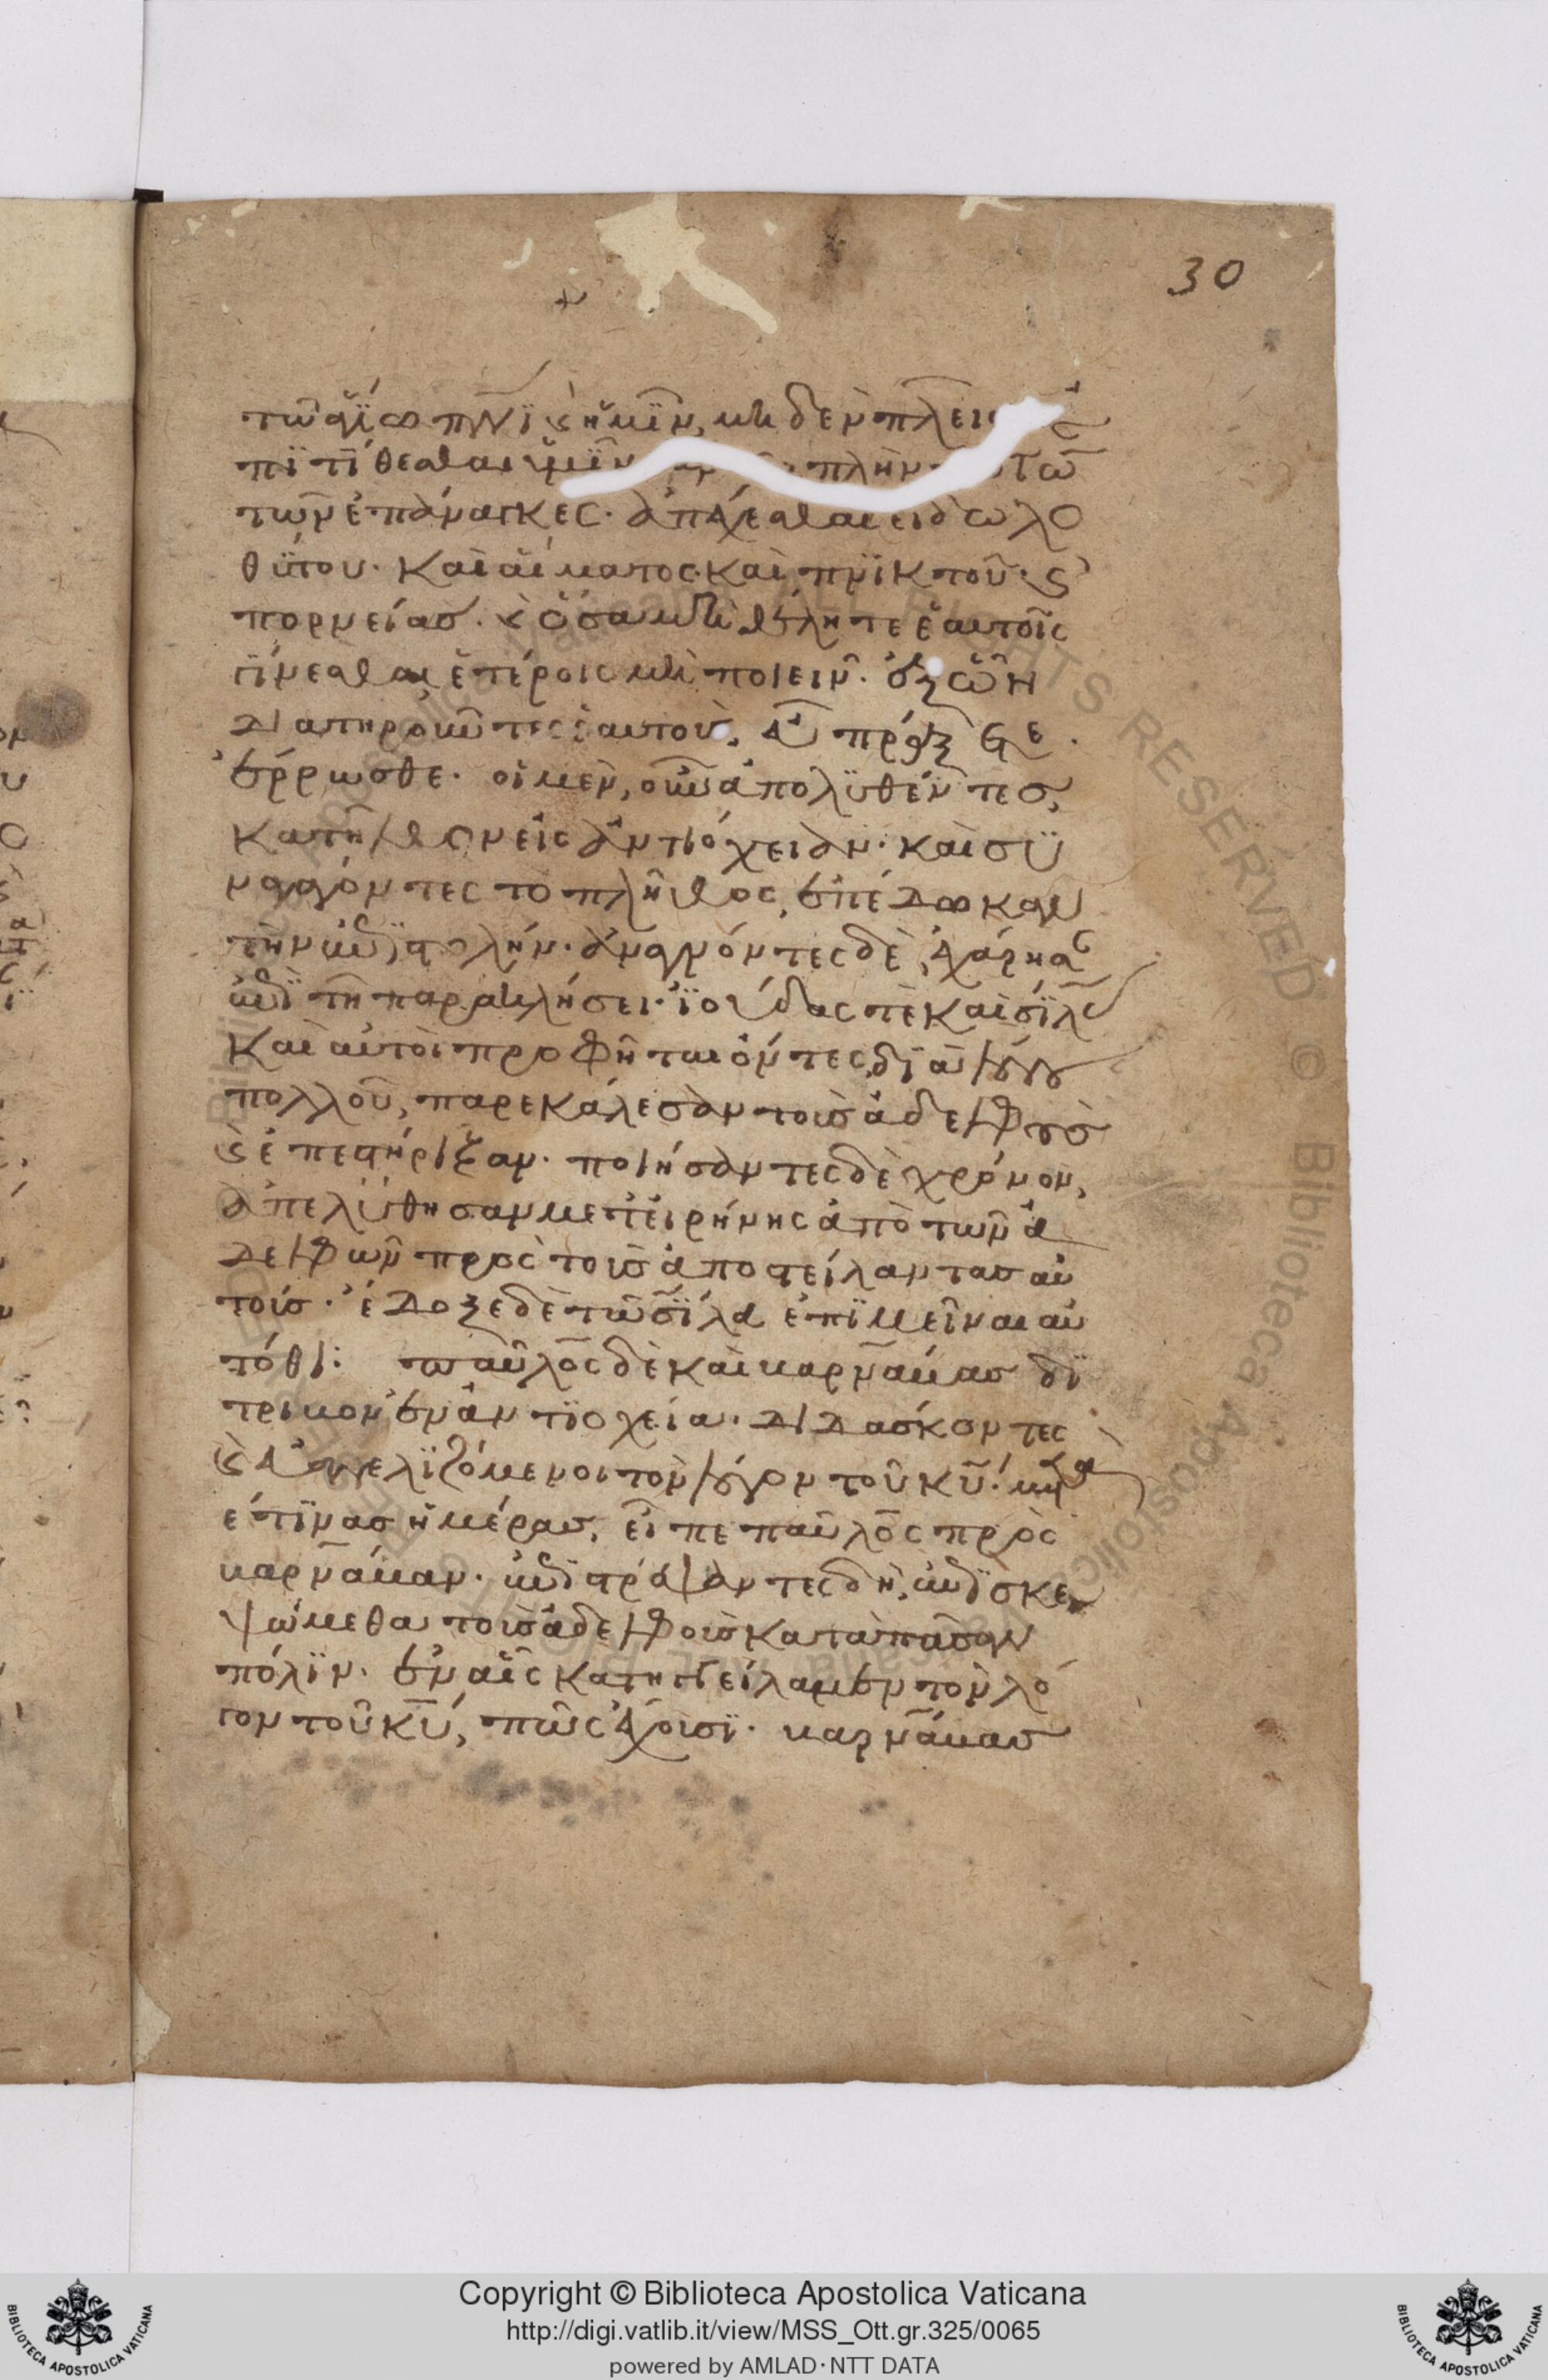 30
τῶ ἁγίω πνι ϗ ἡμῖν, μηδὲν πλεῖ
πιτίθεσθαι ὑμῖν πλὴν τῶ
τῶν ἐπάναγκες· ἀπέχεσθαι εἰδωλο
θύτου· καὶ αἵματος· καὶ πνικτοῦ· ϗ
πορνείας. ϗ ὅσα μὴ θέλητε ἑαυτοῖς
γίνεσθαι ἑτέροις μὴ ποιεῖν. ἐξ ὧν
διατηροῦντες ἑαυτοὺς, εὖ πράξετε.
ἔρρωσθε. οἱ μὲν, οὖν ἀπολυθέντες,
κατῆλθον εἰς ἀντιόχειαν· καὶ συ
ναγαγόντες τὸ πλῆθος, ἐπέδωκαν
τὴν ἐπιστολήν. ἀναγνόντες δὲ, ἐχάρησαν
ἐπὶ τῆ παρακλήσει. ἰούδας τὲ καὶ σίλας
καὶ αὐτοὶ προφῆται ὄντες, διὰ λόγου
πολλοῦ, παρεκάλεσαν τοὺς ἀδελφοὺς
ϗ ἐπεστήριξαν. ποιήσαντες δὲ χρόνον,
ἀπελύθησαν μετ εἰρήνης ἀπὸ τῶν ἀ
δελφῶν πρὸς τοὺς ἀποστείλαντας αὐ
τούς. ἔδοξε δὲ τῶ σίλα ἐπιμεῖναι αὐ
τόθι: παῦλος δὲ καὶ βαρνάβας δι
τριβον ἐν ἀντιοχεία. διδάσκοντες
ϗ εὐαγγελιζόμενοι τὸν λόγον τοῦ κυ. μετὰ
δέ τινας ἡμέρας, εἶπε παῦλος πρὸς
βαρνάβαν. ἐπιστρέψαντες δὴ, ἐπισκε
ψώμεθα τοὺς ἀδελφοὺς κατὰ πᾶσαν
πόλιν. ἐν αἷς κατηγγείλαμεν τὸν λό
γον τοῦ κυ, πῶς ἔχουσι. βαρνάβας
Copyright © Biblioteca Apostolica Vaticana
http://digi.vatlib.it/view/MSS_Ott.gr.325/0065
powered by AMLAD·NTT DATA
BIBLIOTECA APOSTOLICA VATICANA
BIBLIOTECA APOSTOLICA VATICANA